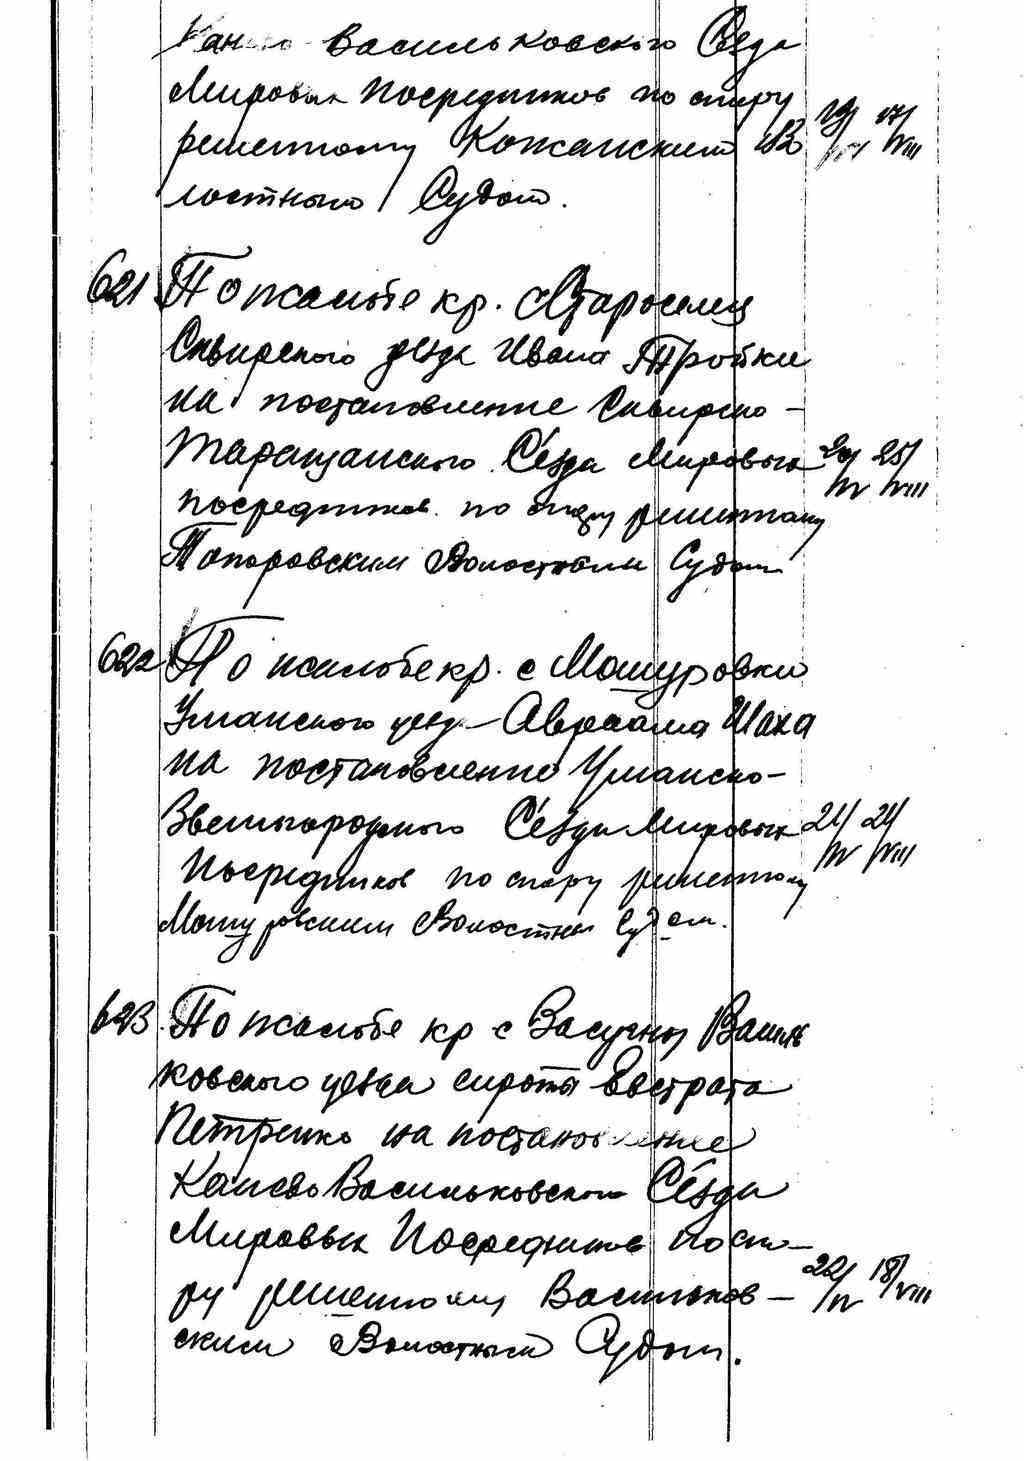 Васильковского Съезда
Мировых Посредников по спору 19/ 17/VIII
решенному Кожанским Во
лостным Судом.
621 По жалобе кр. с. Староселец
Сквирского уезда Ивана Тройки
на постановление Сквирско-
Таращанского Съезда Мировых 20/IV 25/VIII
посредников по спору решенному
Топоровским Волостным Судом
622 По жалобе кр. с Машуровки
Уманского уезда Авраама Шаха
на постановление Уманско-
Звенигородского Съезда Мировых 21/IV 24/VIII
Посредников по спору решенному
Машуровским Волостным Судом.
623 По жалобе кр с Василь
ковского уезда сироты Евстрата
Петренко на постановление
Канево Васильковского Съезда
Мировых Посредников по спо-
ру решенному Васильков- 22/IV 18/VIII
ским Волостным Судом.